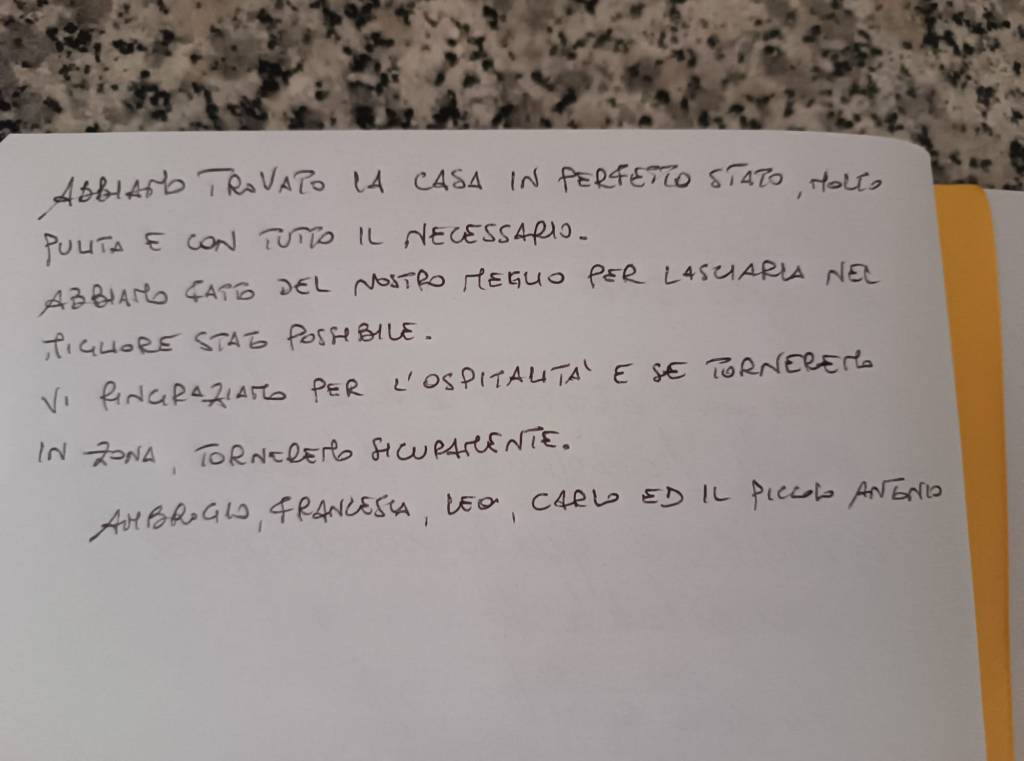 ABBIAMO TROVATO LA CASA IN PERFETTO STATO, MOLTO
PULITA E CON TUTTO IL NECESSARIO.
ABBIAMO FATTO DEL NOSTRO MEGLIO PER LASCIARLA NEL
MIGLIORE STATO POSSIBILE.
VI RINGRAZIAMO PER L'OSPITALITA' E SE TORNEREMO
IN ZONA, TORNEREMO SICURAMENTE.
AMBROGIO, FRANCESCA, LEO, CARLO ED IL PICCOLO ANTONIO